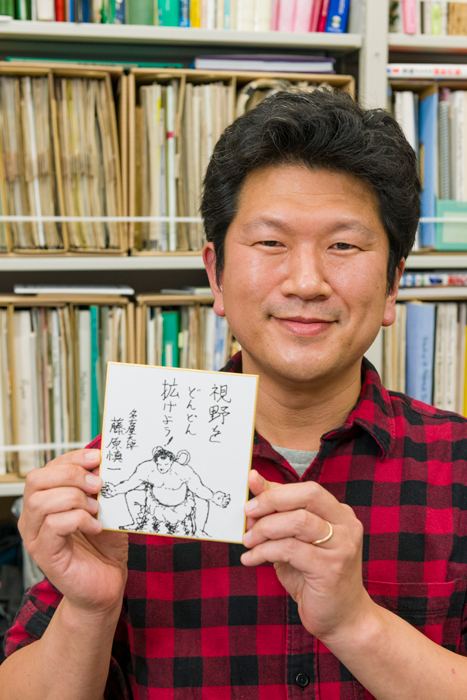 視野を
どんどん
拡げよう!
名古屋大学
藤原慎一